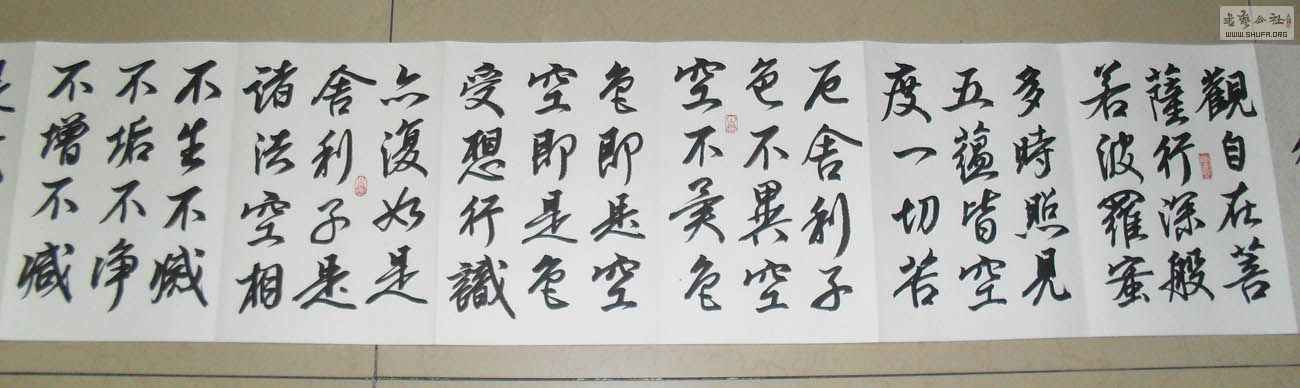 觀自在菩
薩行深般
若波羅蜜
多時照見
五蘊皆空
度一切苦
厄舍利子
色不異空
空不異色
色即是空
空即是色
受想行識
亦復如是
舍利子是
諸法空相
不生不滅
不垢不净
不增不減
書藝公社
WWW.SHUFA.ORG